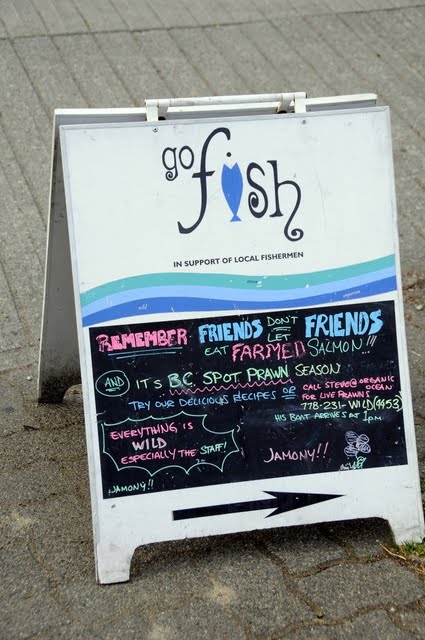 go fish
IN SUPPORT OF LOCAL FISHERMEN
wild
REMEMBER FRIENDS DON'T LET FRIENDS
EAT FARMED SALMON!!!
AND IT'S B.C. SPOT PRAWN SEASON
TRY OUR DELICIOUS RECIPES OR
CALL STEVE@ORGANIC
OCEAN
FOR LIVE PRAWNS
778-231-WILD(9453)
HIS BOAT ARRIVES AT 1pm
EVERYTHING IS
WILD
ESPECIALLY THE STAFF!
JAMONY!!
JAMONY!!